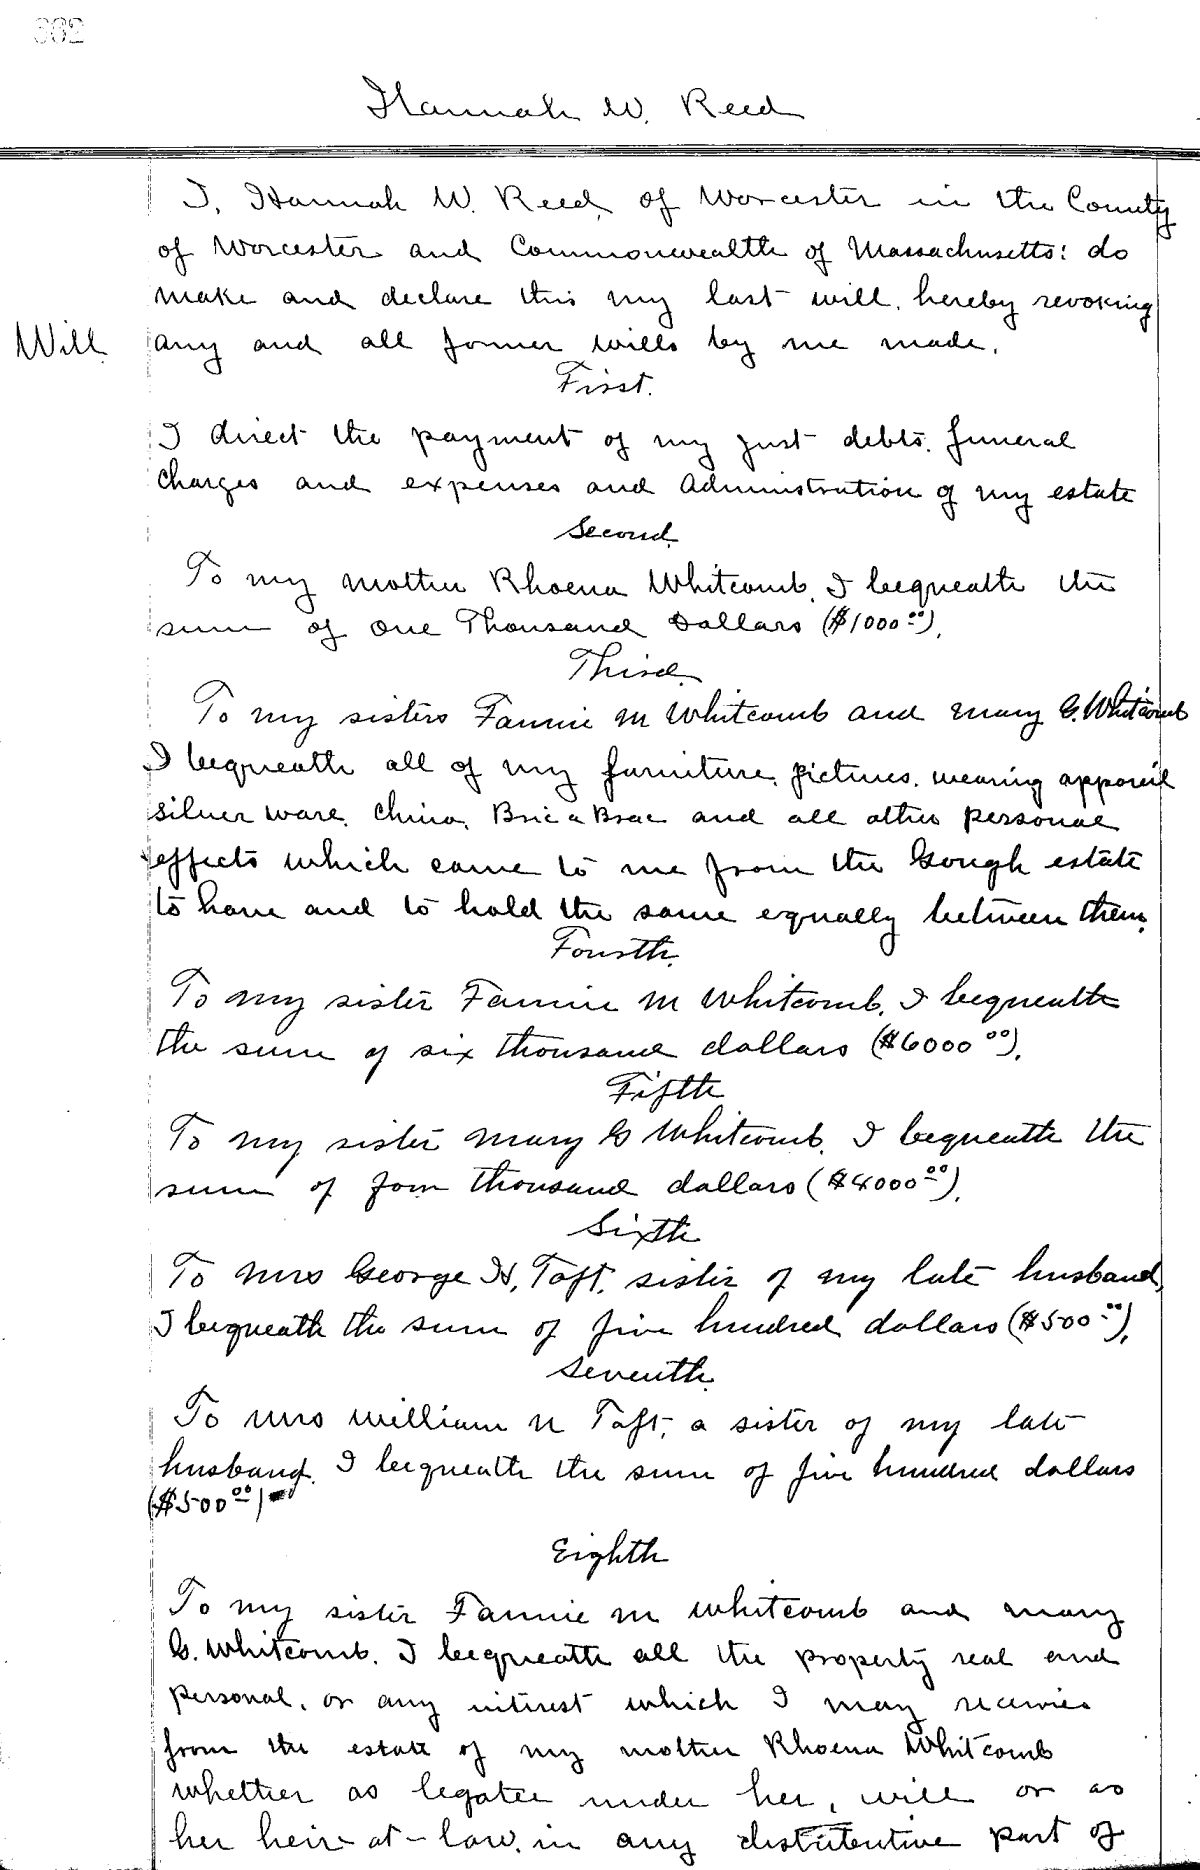 662
Hannah W. Reed
I, Hannah W. Reed, of Worcester in the County
of Worcester and Commonwealth of Massachusetts: do
make and declare this my last will, hereby revoking
Will any and all former wills by me made.
First.
I direct the payment of my just debts, funeral
charges and expenses and Administration of my estate
Second.
To my mother Rhoena Whitcomb, I bequeath the
sum of One Thousand Dollars ($1000.00).
Third.
To my sisters Fannie M Whitcomb and Mary G. Whitcomb
I bequeath all of my furniture, pictures, wearing appareil
silver ware, china, Bric a Brac and all other personal
effects which came to me from the Gough estate
to have and to hold the same equally between them.
Fourth.
To my sister Fannie M Whitcomb, I bequeath
the sum of six thousand dollars ($6000 00).
Fifth
To my sister Mary G Whitcomb, I bequeath the
sum of four thousand dollars ($4000.00).
Sixth
To Mrs George H. Taft, sister of my late husband,
I bequeath the sum of five hundred dollars ($500.00).
Seventh.
To Mrs William N Taft, a sister of my late
husband, I bequeath the sum of five hundred dollars
($500.00)-
Eighth
To my sister Fannie M Whitcomb and Mary
G. Whitcomb, I bequeath all the property real and
personal, or any interest which I may receive
from the estate of my mother Rhoena Whitcomb
whether as legatee under her, will or as
her heir-at-law, in any distributive part of